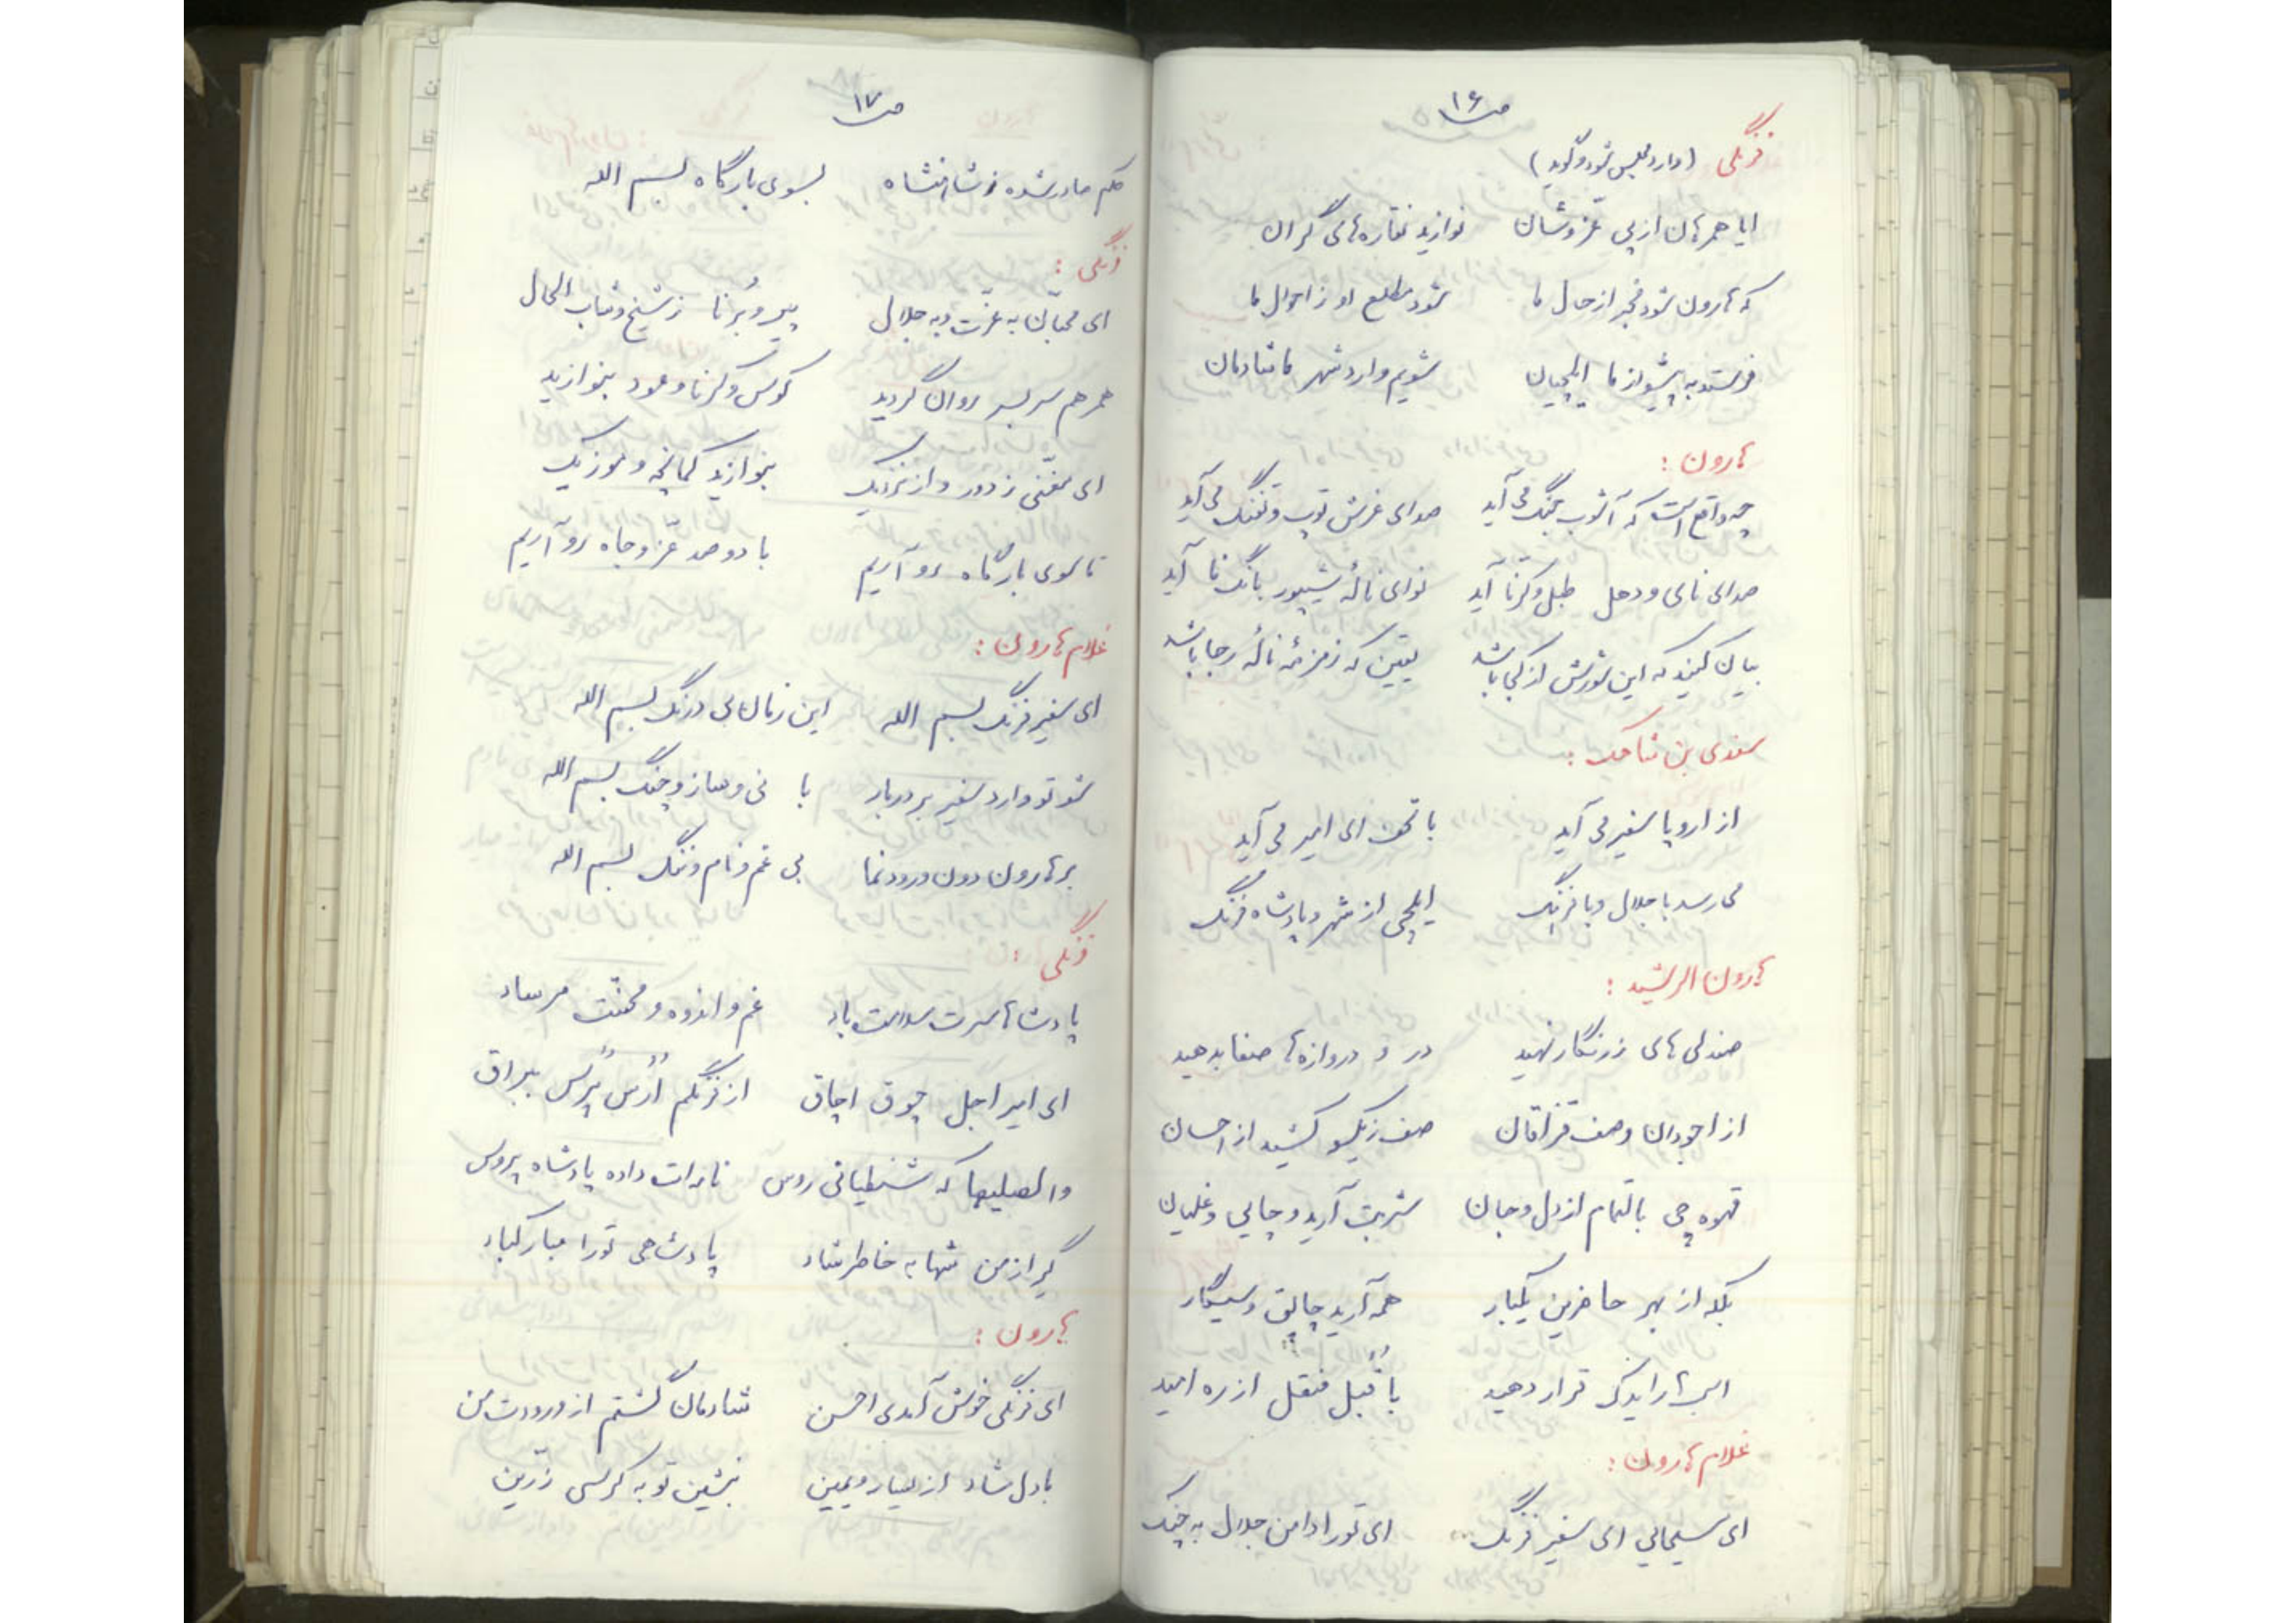 ص۱۶
فرنگی (وارد مجلس شود و گوید)
ایا همرهان از پی عز و شان نوازید نقاره‌های گران
که هارون شود مخبر از حال ما شود مطلع او ز احوال ما
فرستد به پیشواز ما ایلچیان شویم وارد شهر ما شادمان
هارون :
چه واقع است که آشوب جنگ می آید صدای غرش توپ و تفنگ می آید
صدای نای و دهل طبل و کرنا آید نوای نالهٔ شیپور بانگ نا آید
بیان کنید که این شورش از کجا باشد یقین که زمزمهٔ نالهٔ رجا باشد
سندی بن شاهک :
از اروپا سفیر می آید با تحف ای امیر می آید
می رسد با جلال و با فرهنگ ایلچی از شهر و پادشاه فرنگ
هارون الرشید :
صندلی های زرنگار نهید در و دروازه ها صفا بدهید
از اجودان و صف قزاقان صف ز یکسو کشید از احسان
قهوه چی بالتمام از دل و جان شربت آرید و چایی و غلیان
بلکه از بهر حاضرین یکبار همه آرید چاپق و سیگار
اسبها را یدک قرار دهید با قبل منقل از ره امید
غلام هارون :
ای مسیحایی ای سفیر فرنگ ای تو را دامن جلال به چنگ
ص۱۷
حکم صادر شده ز شاهنشاه بسوی بارگاه بسم الله
فرنگی :
ای محبان به عزت و به جلال پیر و برنا ز شیخ و شاب الحال
همرهم سر بسر روان گردید کوس و کرنا و عود بنوازید
ای مغنی ز دور و از نزدیک بنوازید کمانچه و موزیک
تا سوی بارگاه رو آریم با دو صد عز و جاه رو آریم
غلام هارون :
ای سفیر فرنگ بسم الله این زمان بی درنگ بسم الله
شو تو وارد سفیر بر دربار با نی و ساز و چنگ بسم الله
بر هارون دون ورود نما بی غم و نام و ننگ بسم الله
فرنگی :
پادشاها سرت سلامت باد غم و اندوه و محنتت مرساد
ای امیر اجل چوق اچاق از فرنگم ارس پرس بیراق
والصلیبها که شنطیانی روس نامه‌ات داده پادشاه پروس
گیر از من شها به خاطر شاد پادشاهی تو را مبارکباد
هارون :
ای فرنگی خوش آمدی احسن شادمان گشتم از ورودت من
با دل شاد از یسار و یمین بنشین تو به کرسی زرین